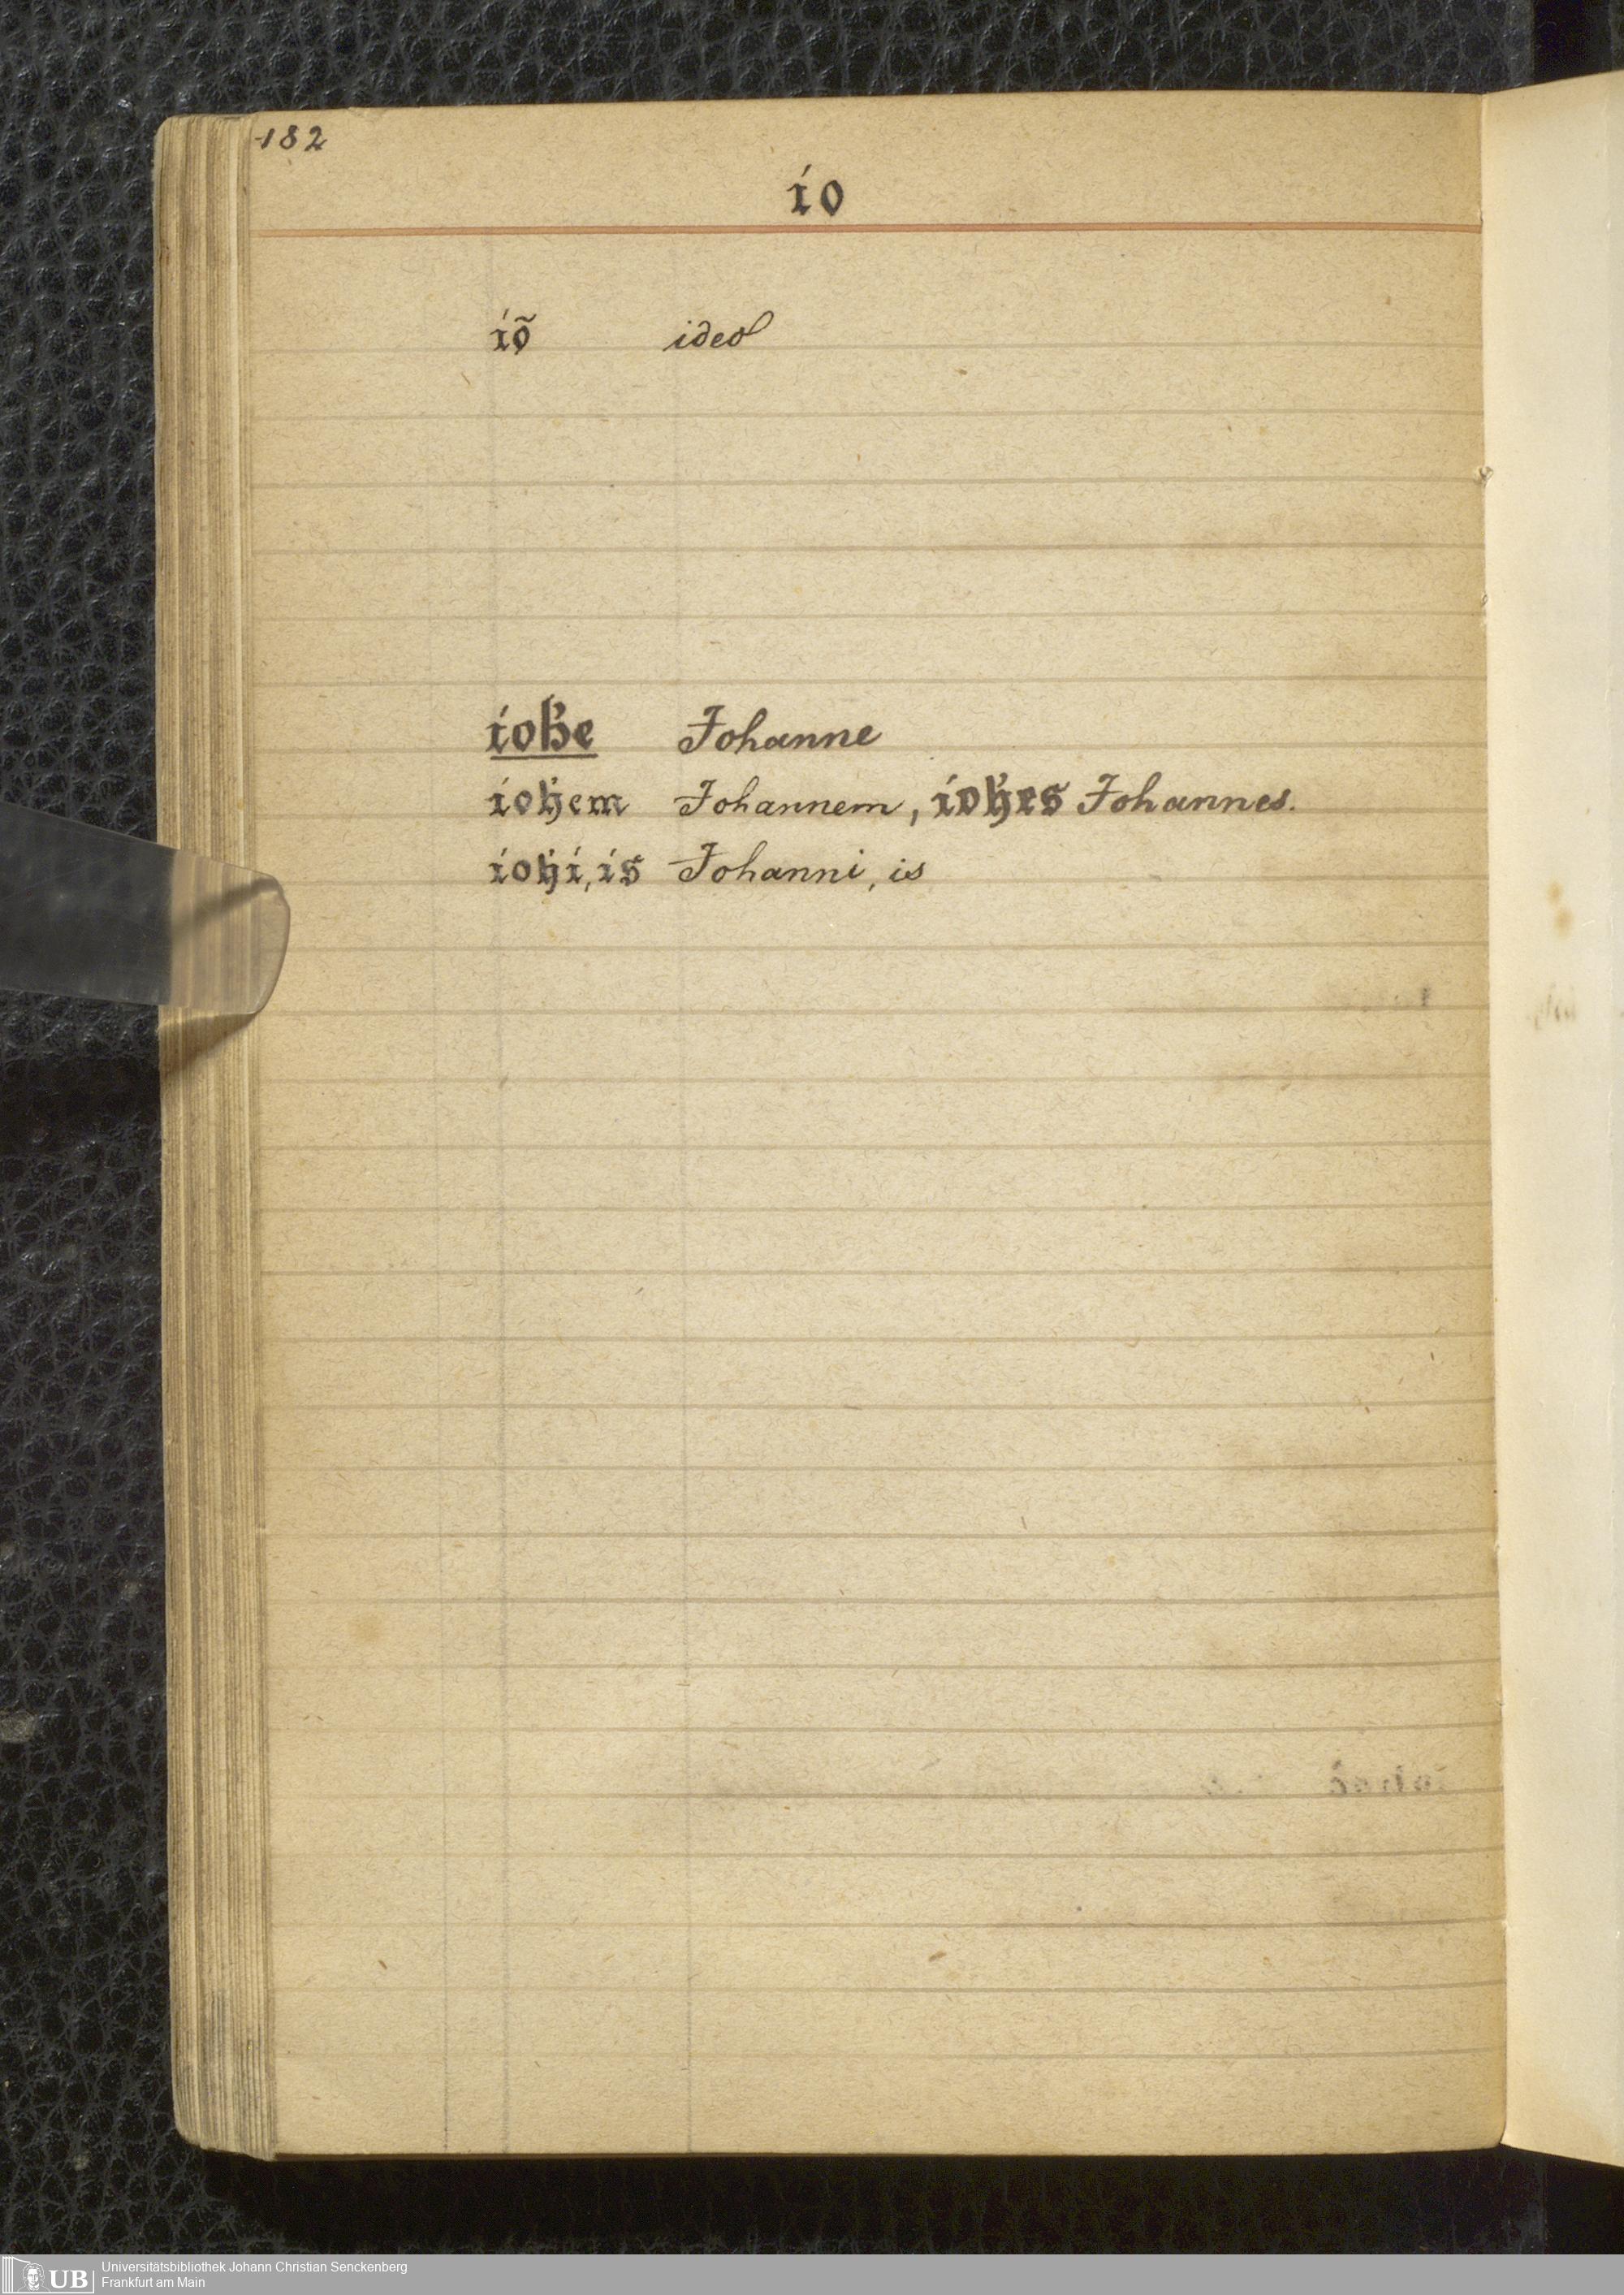 182
io
iõ ideo
ioh̄e Johanne
ioh̄em Johannem, ioh̄es Johannes.
ioh̄i, is Johanni, is
UB Universitätsbibliothek Johann Christian Senckenberg
Frankfurt am Main